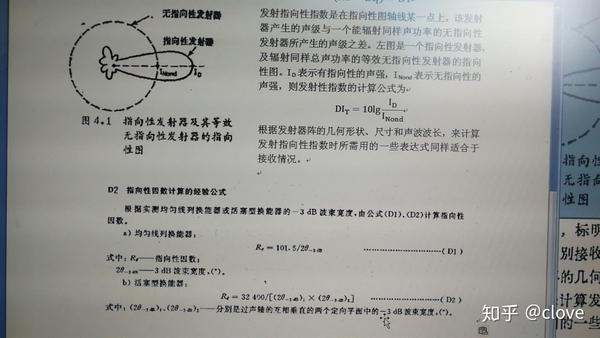 无指向性发射器
指向性发射器
I_Nond
I_D
图 4.1 指向性发射器及其等效
无指向性发射器的指向
性图
发射指向性指数是在指向性图轴线某一点上，该发射
器产生的声级与一个能辐射同样声功率的无指向性
发射器所产生的声级之差。左图是一个指向性发射器，
及辐射同样总声功率的等效无指向性发射器的指向
性图。I_D表示有指向性的声强，I_Nond表示无指向性的
声强，则发射性指数的计算公式为
DI_T = 10lg I_D/I_Nond
根据发射器阵的几何形状、尺寸和声波波长，来计算
发射指向性指数时所需用的一些表达式同样适合于
接收情况。
D2 指向性因数计算的经验公式
根据实测均匀线列换能器或活塞型换能器的 −3 dB 波束宽度，由公式(D1)、(D2)计算指向性
因数。
a) 均匀线列换能器：
R_θ = 101.5/2θ_−3 dB ……………………( D1 )
式中：R_θ——指向性因数；
2θ_−3 dB——3 dB 波束宽度，(°)。
b) 活塞型换能器：
R_θ = 32 400/[(2θ_−3 dB)_1 × (2θ_−3 dB)_2] ……………………( D2 )
式中：(2θ_−3 dB)_1、(2θ_−3 dB)_2——分别是过声轴的互相垂直的两个定向平面中的 −3 dB 波束宽度，(°)。
指向
无指
性图
，标明
别接收
的几何
计算发
的一些
知乎 @clove